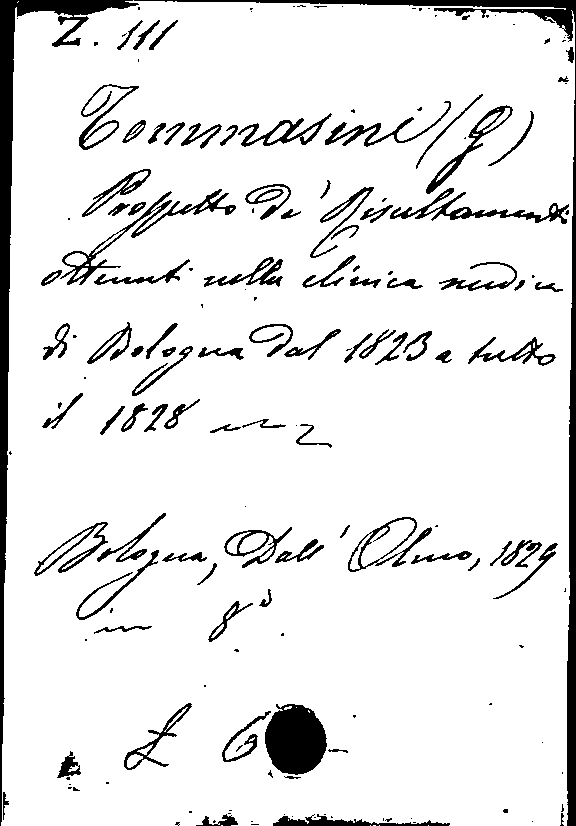 Z. 111
Tommasini (G)
Prospetto de' Risultamenti
ottenuti nella clinica medica
di Bologna dal 1823 a tutto
il 1828
Bologna, Dall' Olmo, 1829
in 8°
£ 6